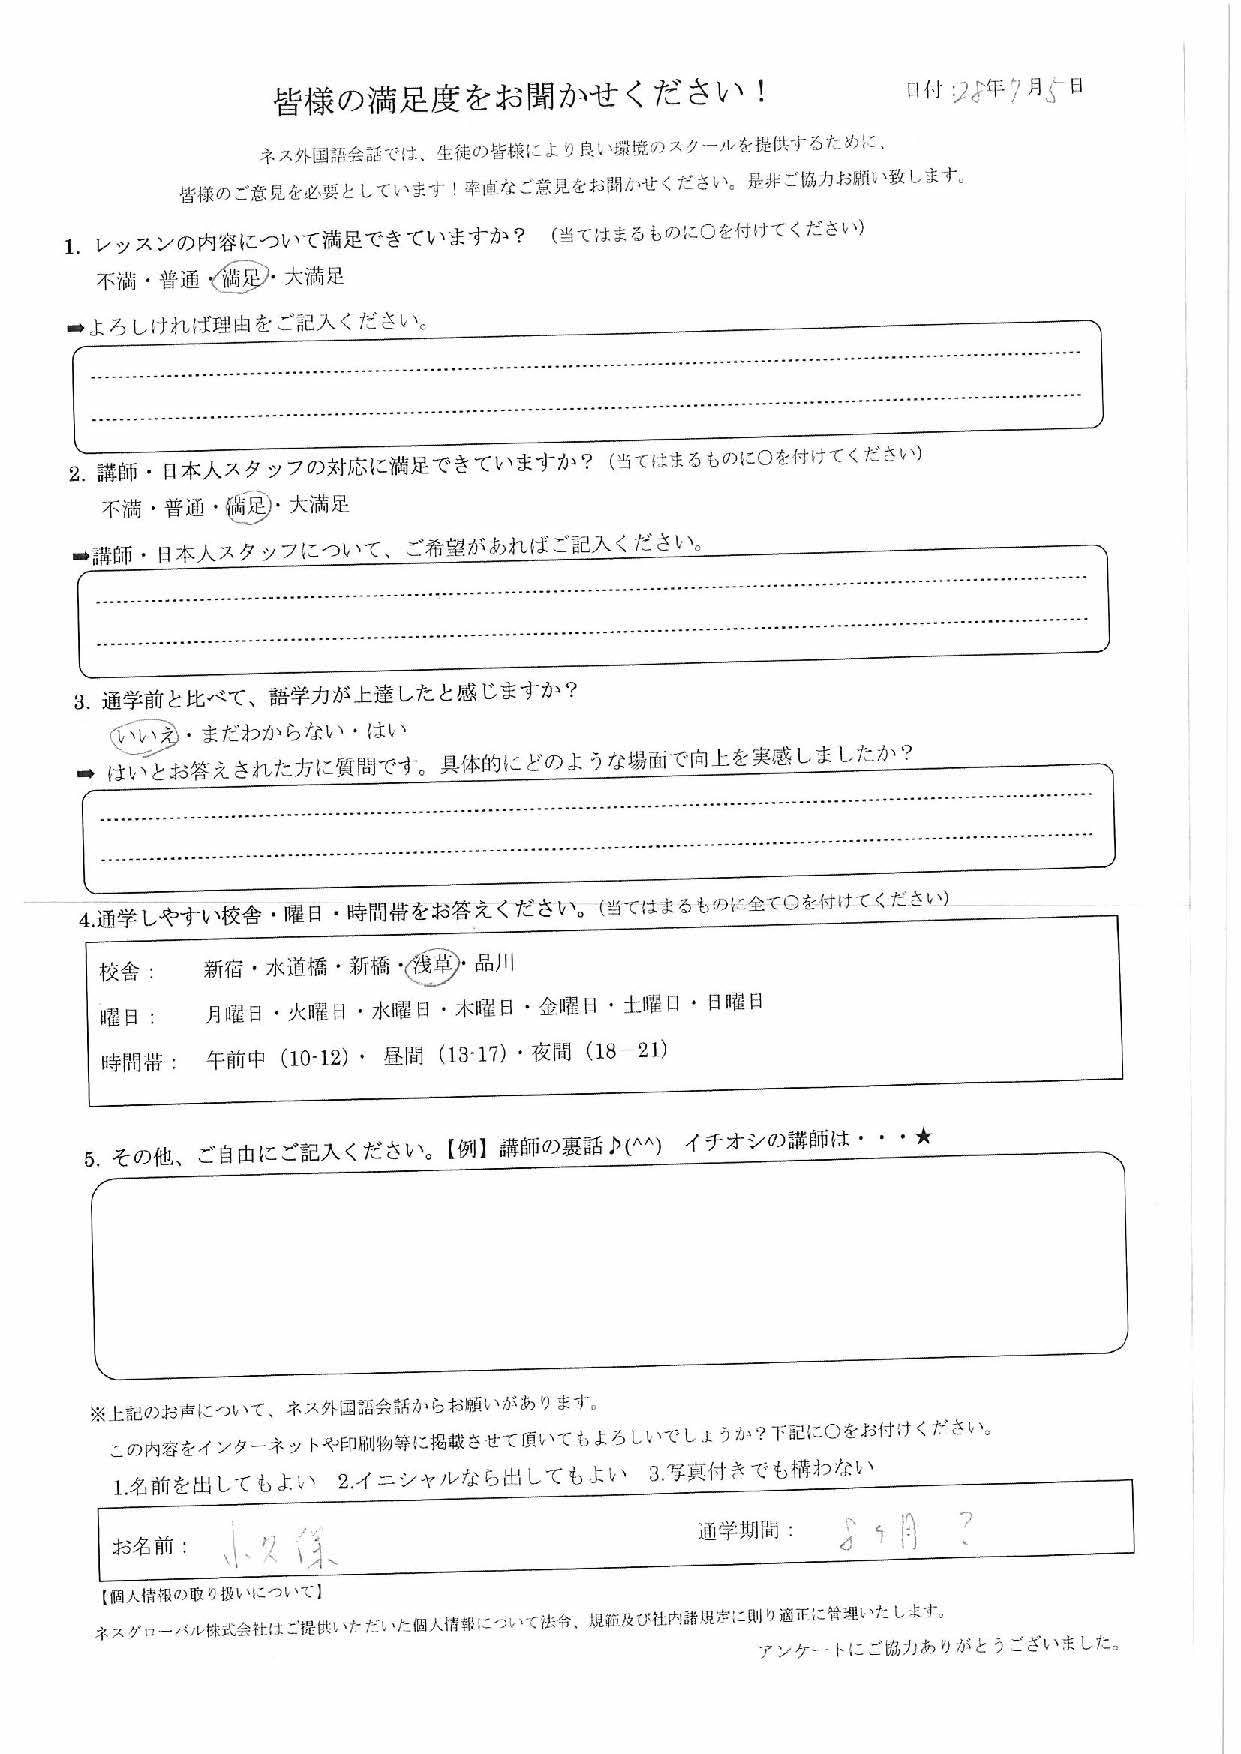 皆様の満足度をお聞かせください！
日付:28年7月5日
ネス外国語会話では、生徒の皆様により良い環境のスクールを提供するために、
皆様のご意見を必要としています！率直なご意見をお聞かせください。是非ご協力お願い致します。
1. レッスンの内容について満足できていますか？ （当てはまるものに〇を付けてください）
不満・普通・満足・大満足
➡よろしければ理由をご記入ください。
2. 講師・日本人スタッフの対応に満足できていますか？（当てはまるものに〇を付けてください）
不満・普通・満足・大満足
➡講師・日本人スタッフについて、ご希望があればご記入ください。
3. 通学前と比べて、語学力が上達したと感じますか？
いいえ・まだわからない・はい
➡ はいとお答えされた方に質問です。具体的にどのような場面で向上を実感しましたか？
4.通学しやすい校舎・曜日・時間帯をお答えください。（当てはまるものに全て〇を付けてください）
校舎： 新宿・水道橋・新橋・浅草・品川
曜日： 月曜日・火曜日・水曜日・木曜日・金曜日・土曜日・日曜日
時間帯： 午前中（10-12）・ 昼間（13-17）・夜間（18―21）
5. その他、ご自由にご記入ください。【例】講師の裏話♪(^^) イチオシの講師は・・・★
※上記のお声について、ネス外国語会話からお願いがあります。
この内容をインターネットや印刷物等に掲載させて頂いてもよろしいでしょうか？下記に〇をお付けください。
1.名前を出してもよい 2.イニシャルなら出してもよい 3.写真付きでも構わない
お名前： 小久保 通学期間： 8ヶ月 ？
【個人情報の取り扱いについて】
ネスグローバル株式会社はご提供いただいた個人情報について法令、規範及び社内諸規定に則り適正に管理いたします。
アンケートにご協力ありがとうございました。